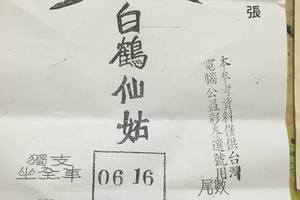 張
本參考資料僅供台灣
電腦公益彩券選號用
尾數
白鶴仙姑
獨支
坐全車
06 16